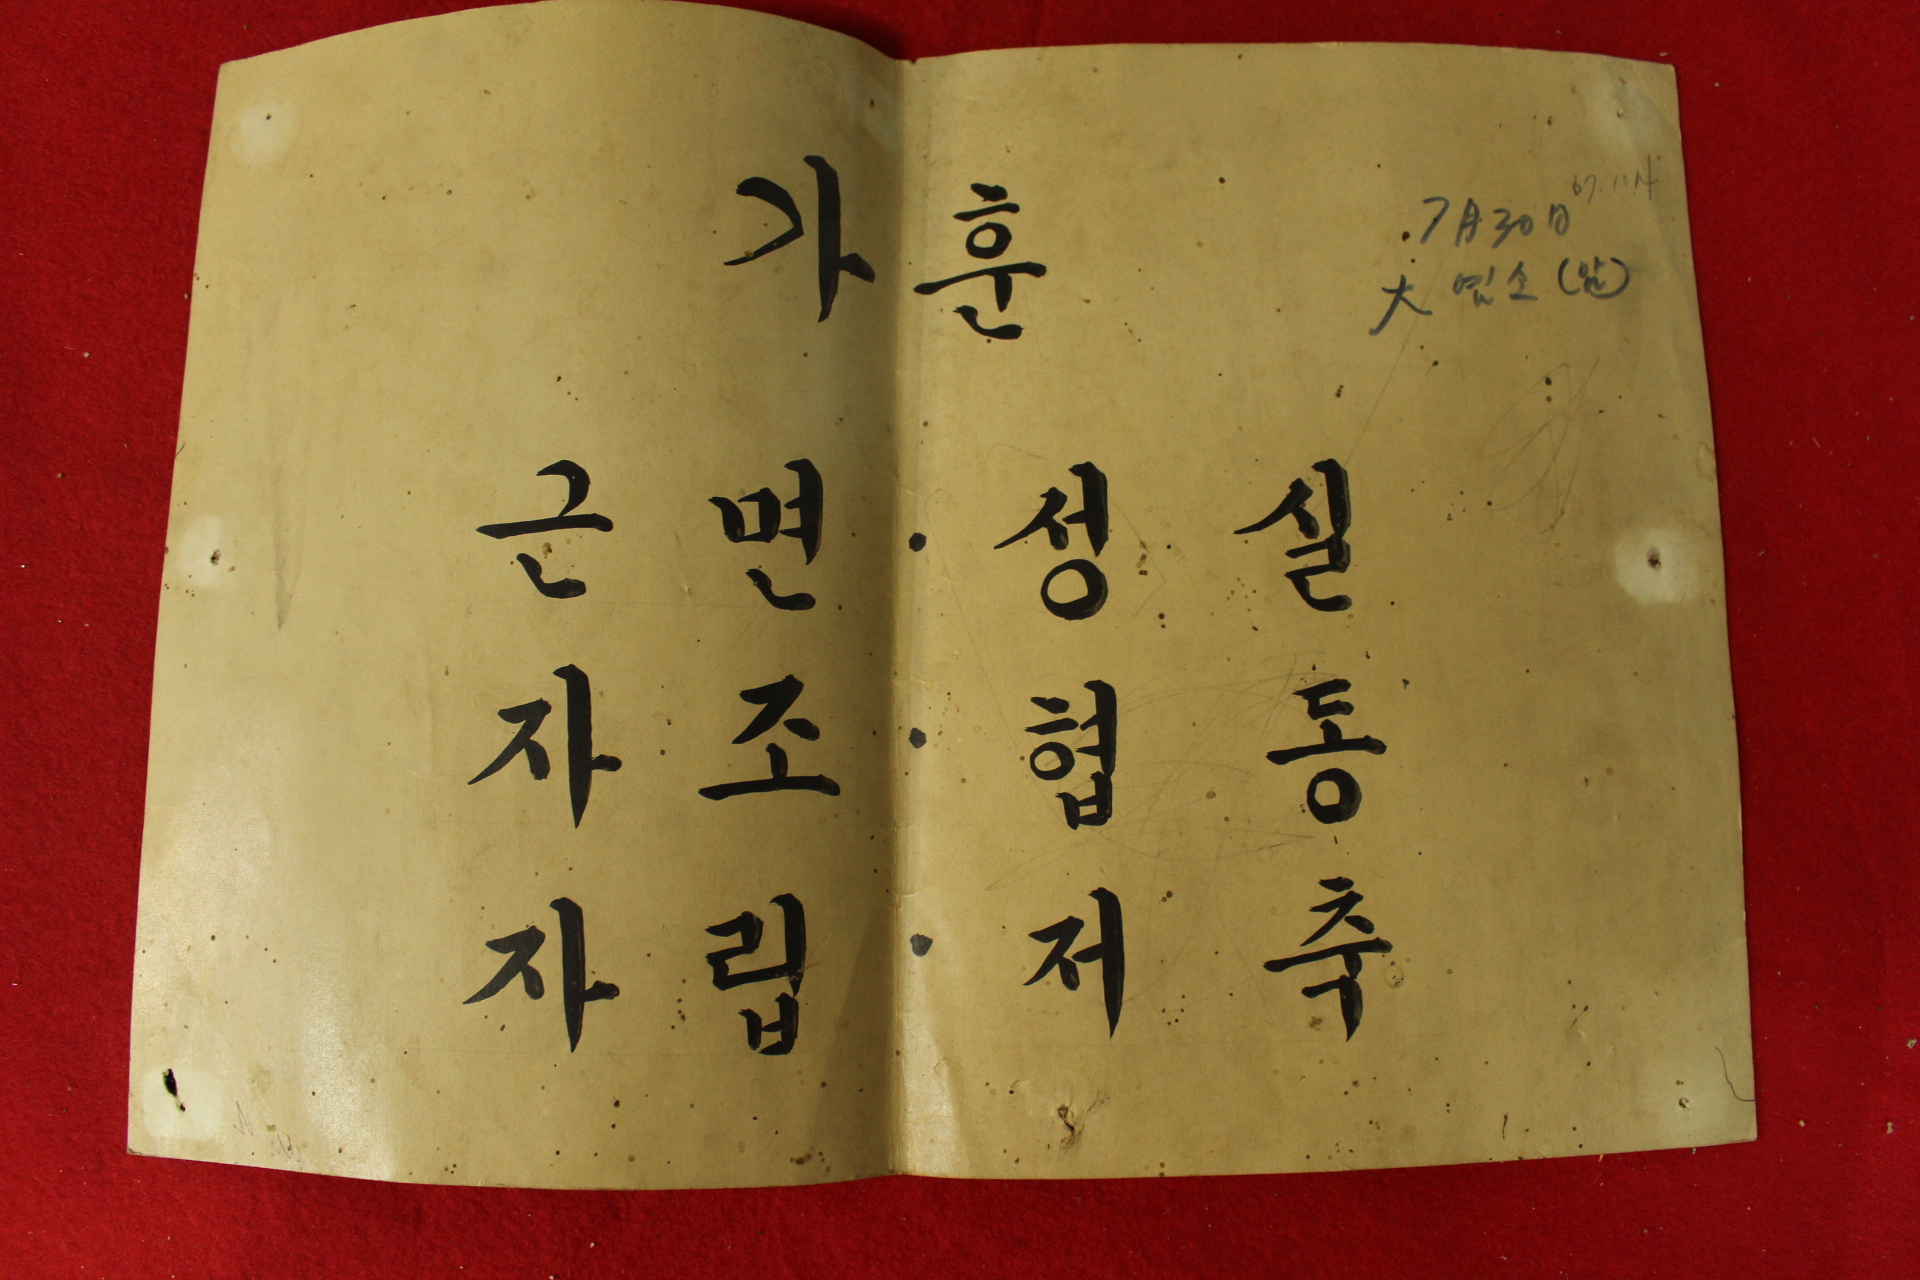 가훈
7月30日
大 염소 (암)
근면 · 성실
자조 · 협동
자립 · 저축